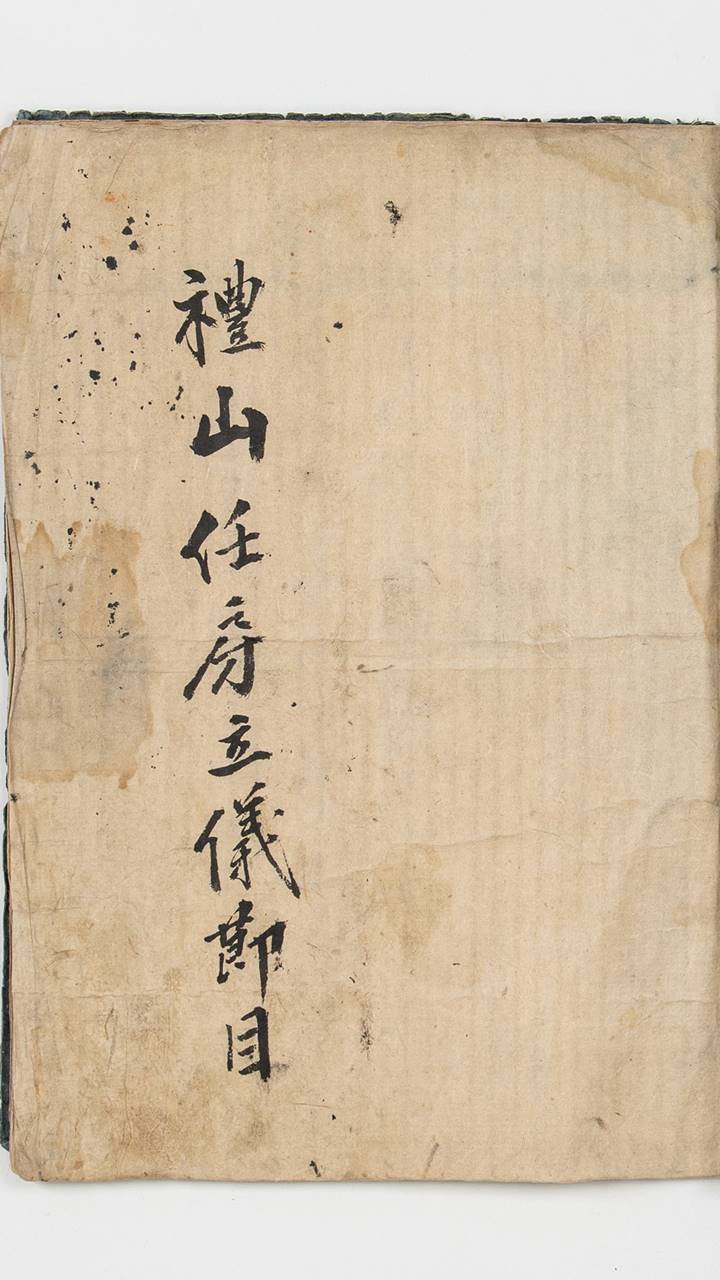 禮山任房立儀節目